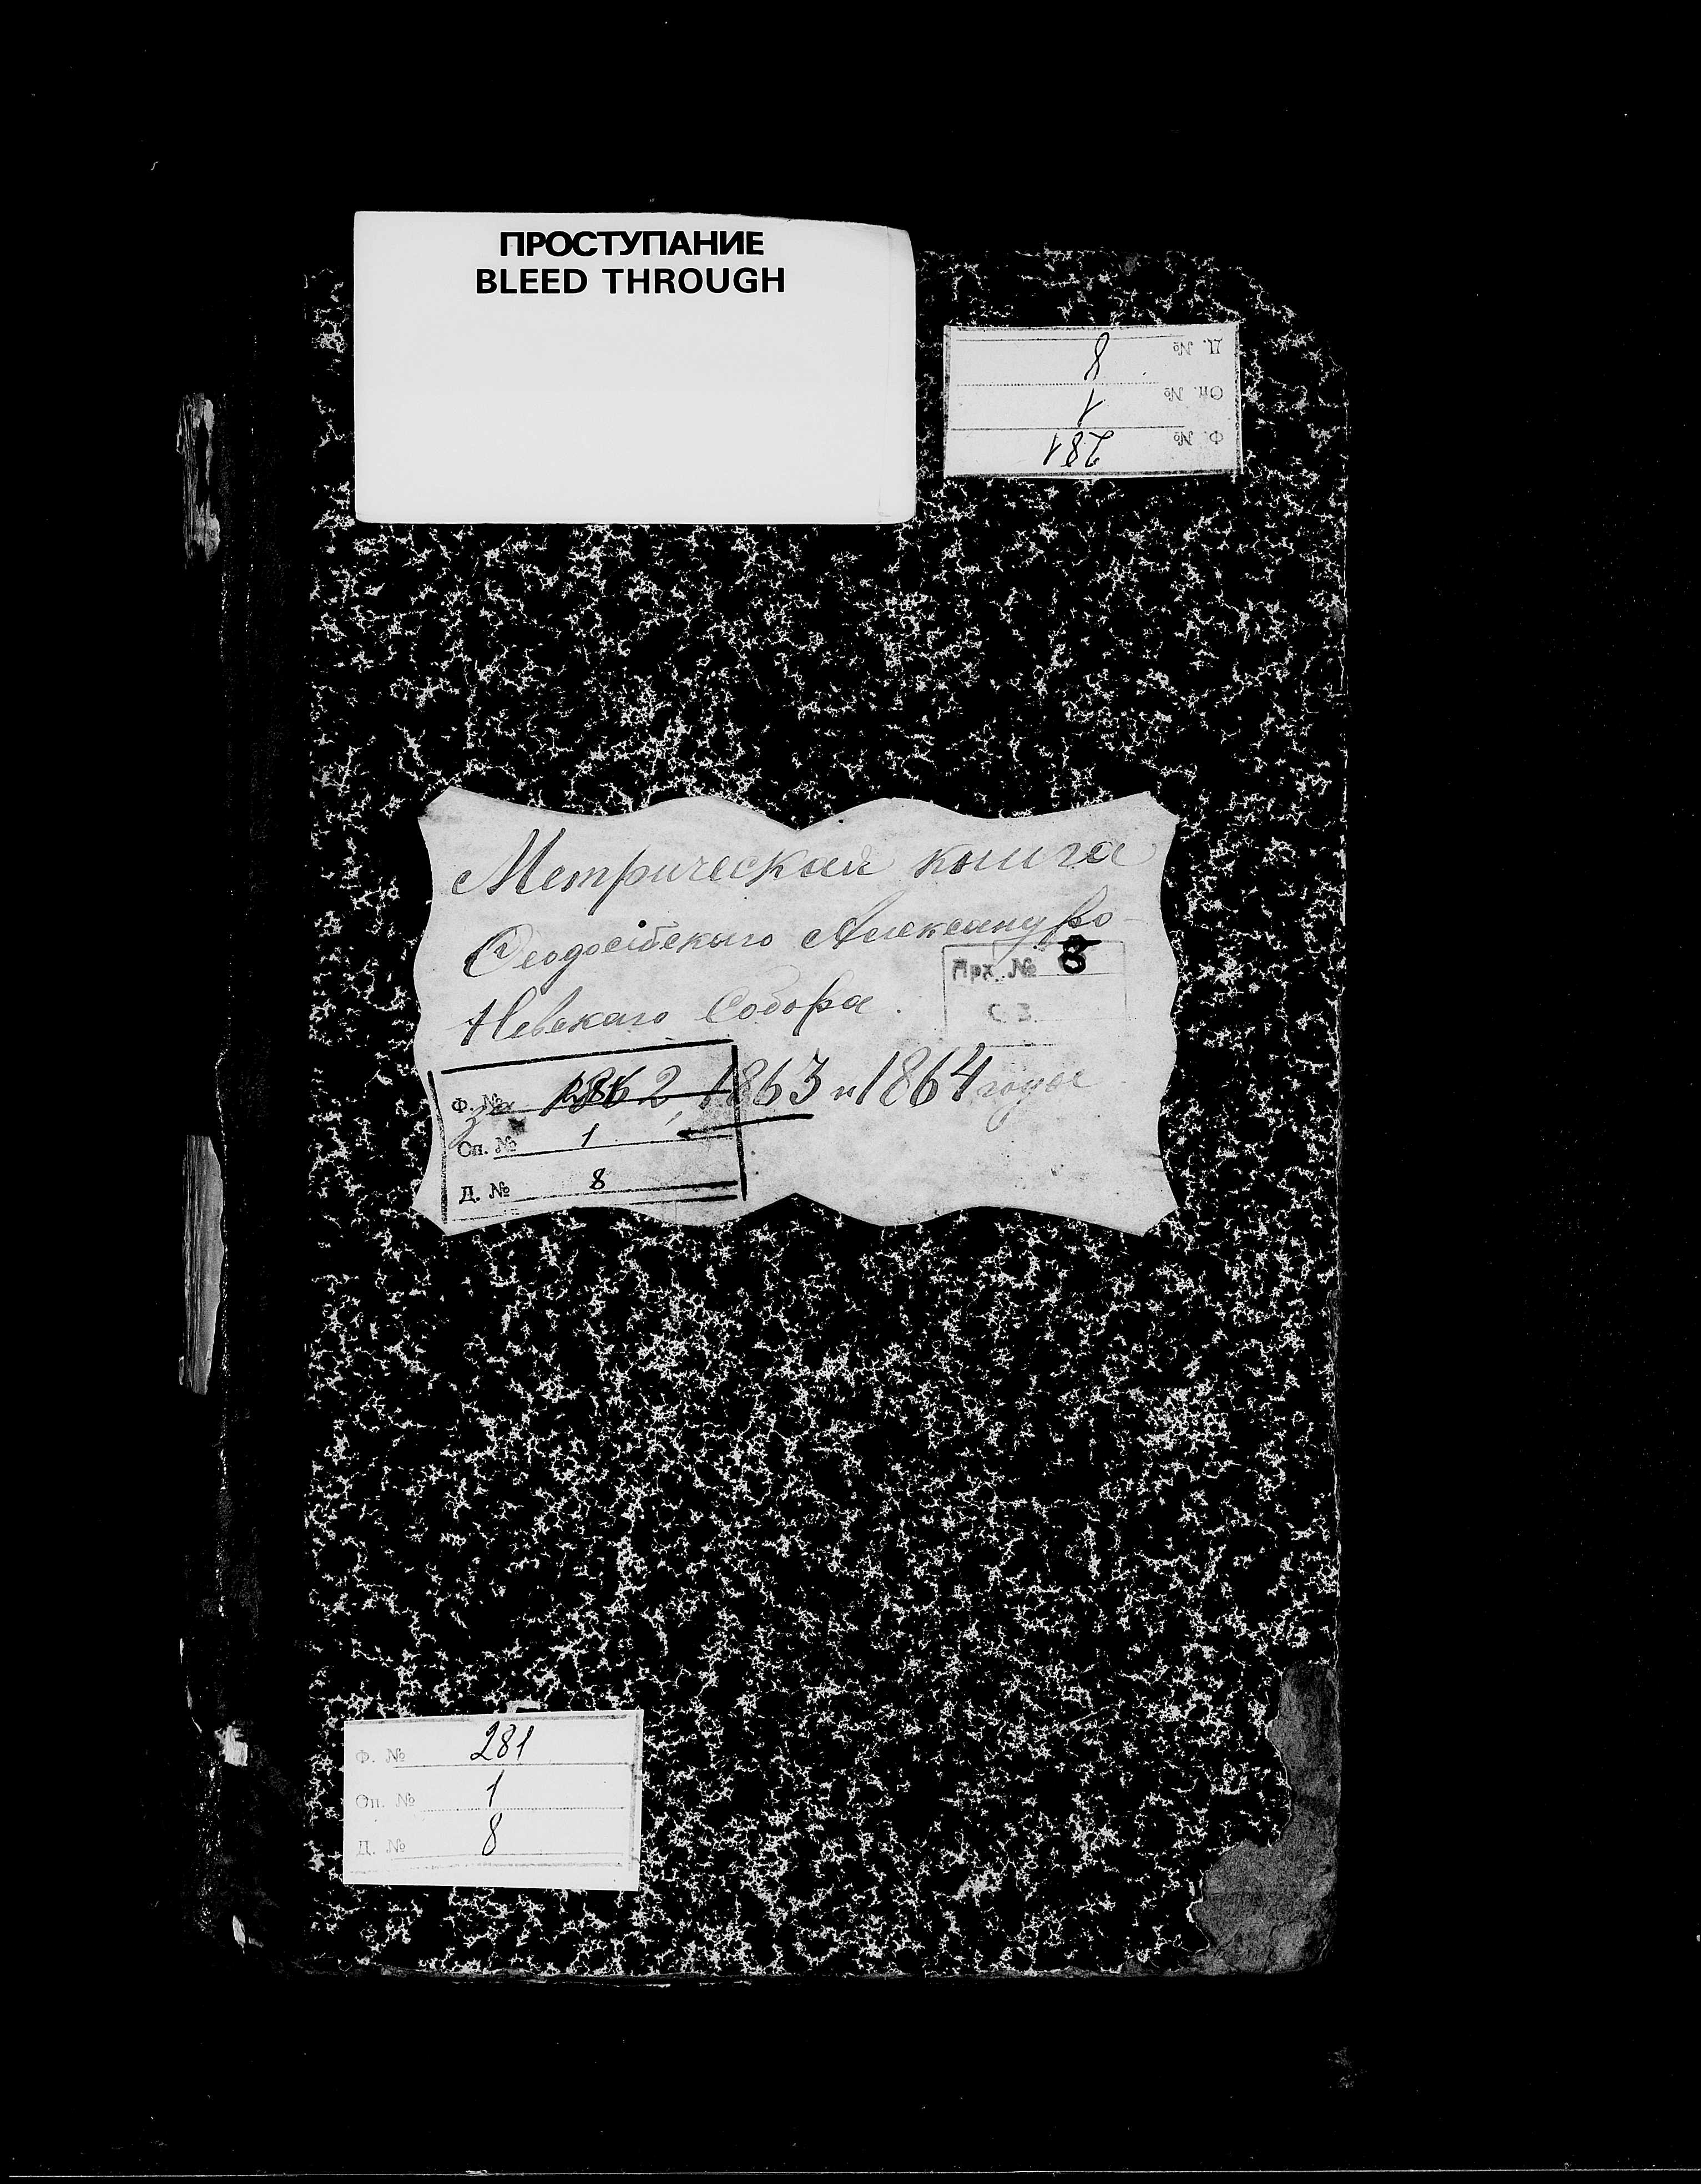 ПРОСТУПАНИЕ
BLEED THROUGH
Ф. № 281
Оп. № 1
Д. № 8
Метрическая книга
Ѳеодосійскаго Александро-
Невскаго Собора.
Арх. № 8
С 3
за 1862, 1863 и 1864 годы
Ф. №
Оп. № 1
Д. № 8
Ф. № 281
Оп. № 1
Д. № 8